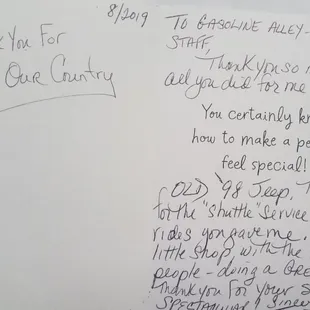 8/2019
k You For
Our Country
TO GASOLINE ALLEY-
STAFF,
Thank you so
all you did for me
You certainly k
how to make a pe
feel special!
OLD, '98 Jeep, T
for the "shuttle" service
rides you gave me.
little shop, with the
people - doing a GRE
thank you for your S
SPECTACULAR! Since